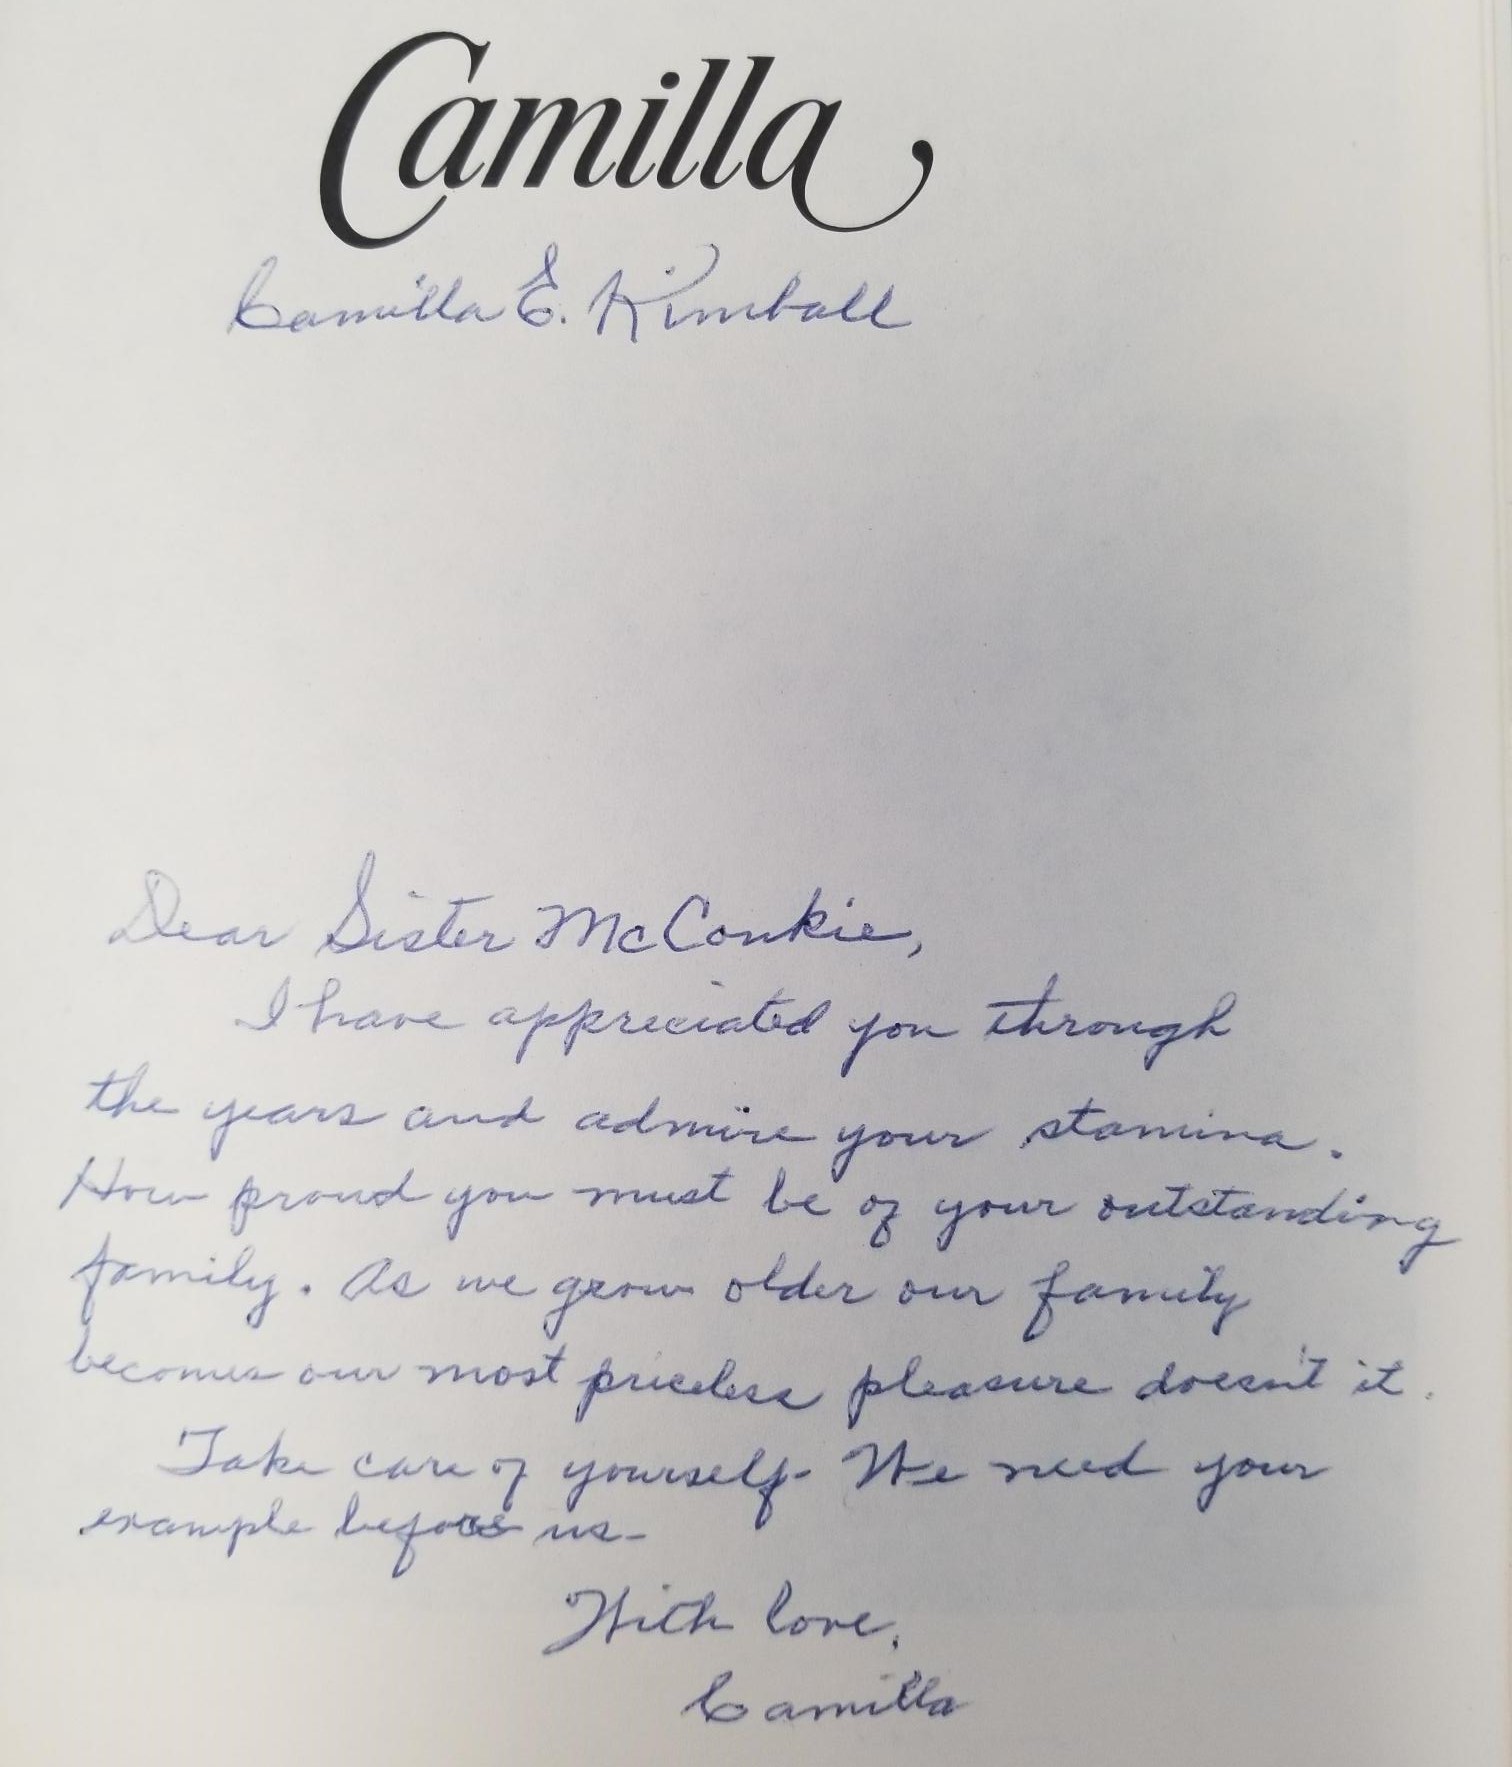 Camilla
Camilla E. Kimball
Dear Sister McConkie,
I have appreciated you through
the years and admire your stamina.
How proud you must be of your outstanding
family. As we grow older our family
becomes our most priceless pleasure doesn't it.
Take care of yourself- We need your
example before us-
With love,
Camilla